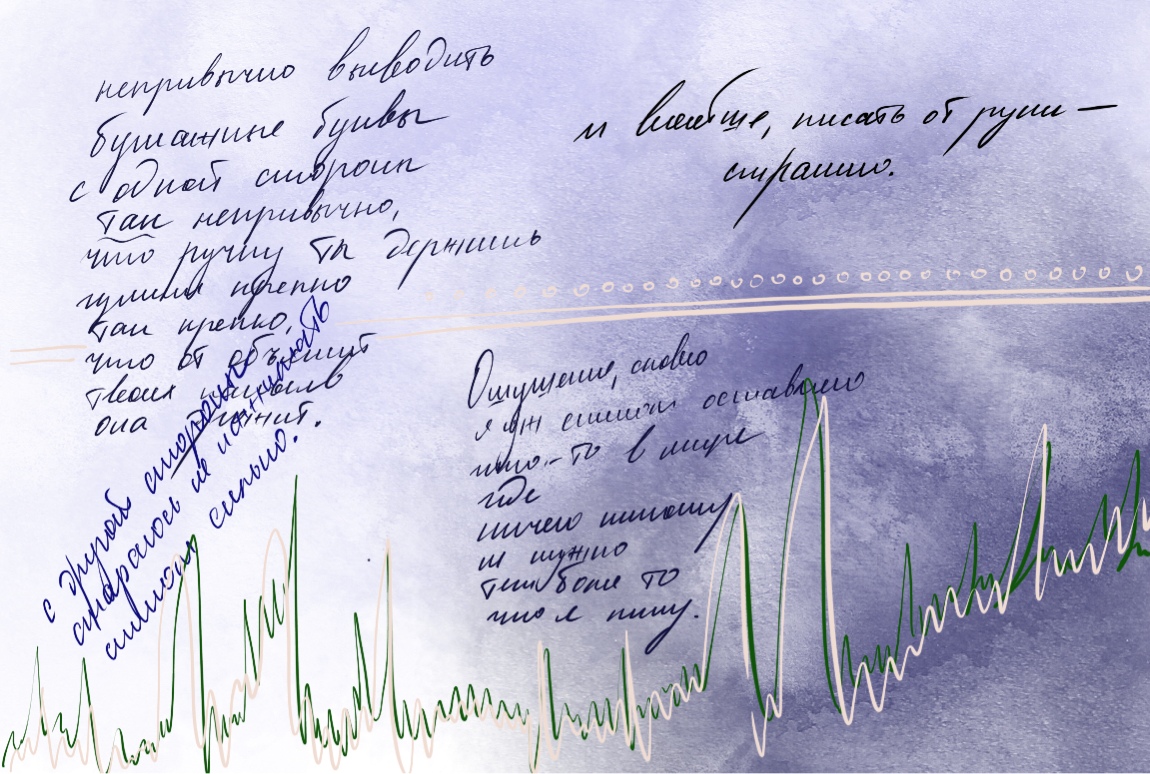 непривычно выводить
бумажные буквы
с одной стороны
так непривычно,
что ручку ты держишь
крепко
так крепко,
что от объятий
твоих
она
с другой стороны
стараюсь не нажимать
слишком сильно.
и вообще, писать от руки —
страшно.
Ощущение, словно
я уж слишком оставляю
что-то в мире
где
ничего никому
не нужно
тем более то
что я пишу.